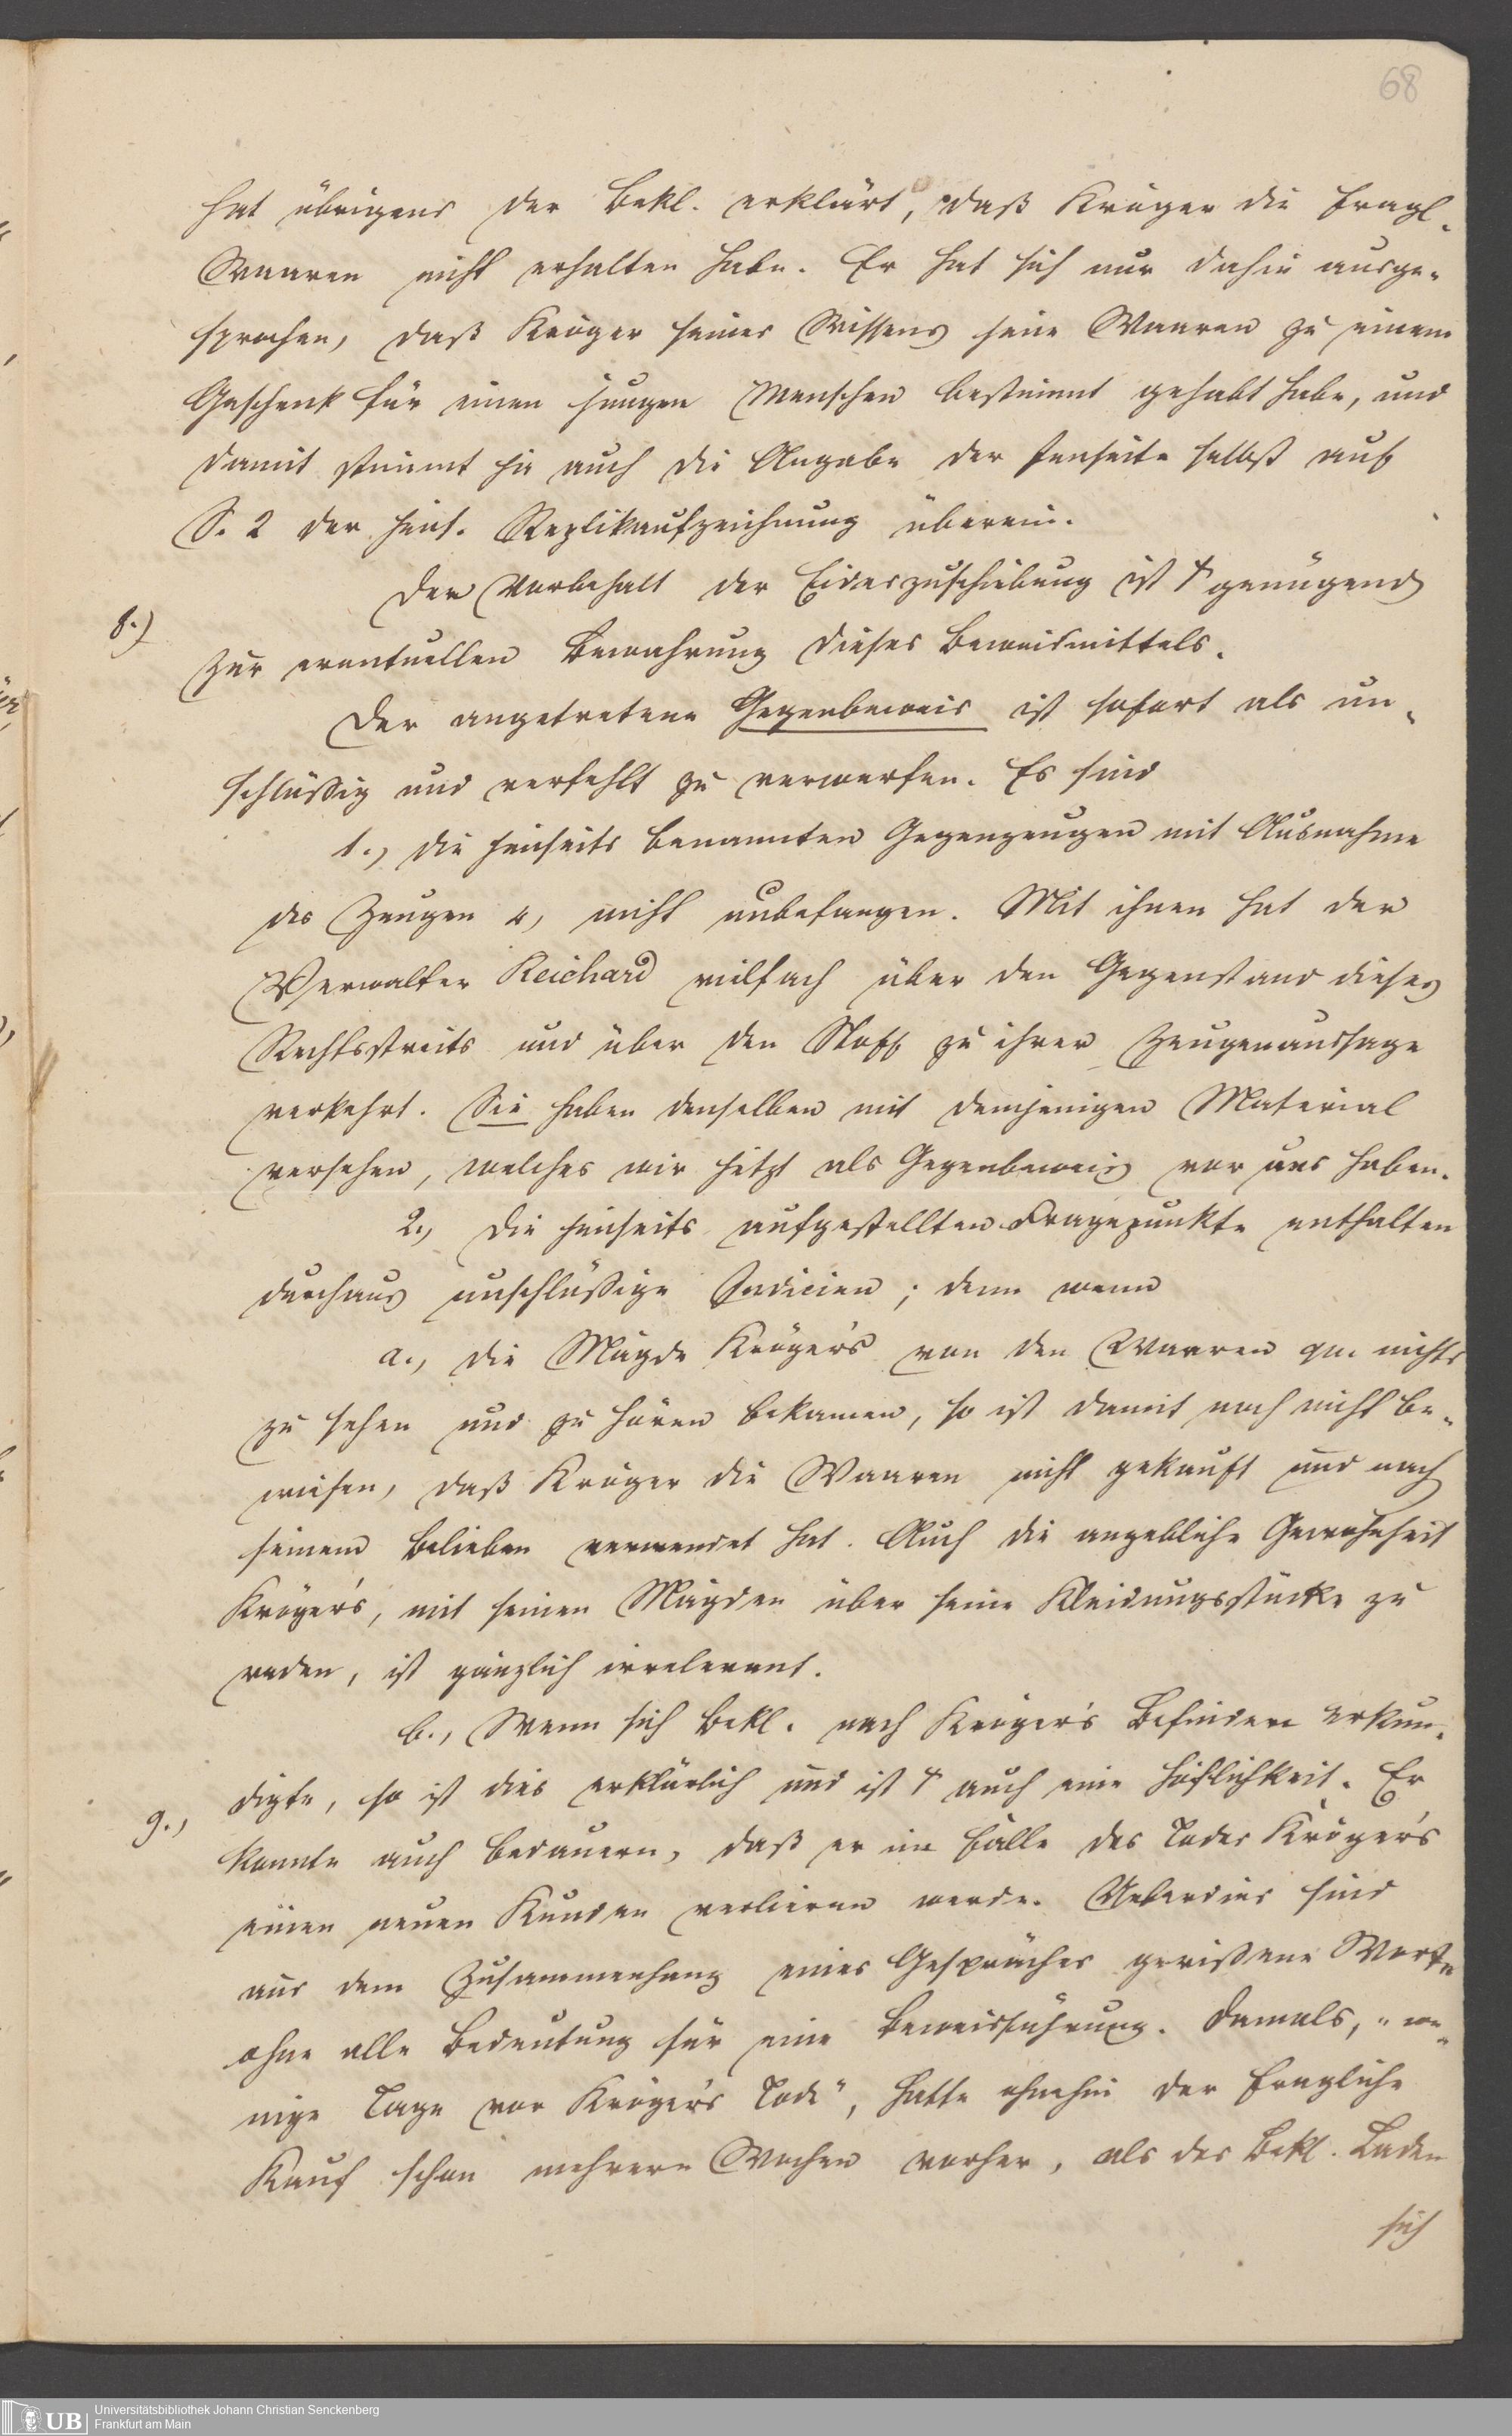 68
hat übrigens der Bekl. erklärt, daß Kröger die fragl.
Waaren nicht erhalten habe. Er hat sich nur dahin ausge-
sprochen, daß Kröger seines Wissens seine Waaren zu einem
Geschenk für einen jungen Menschen bestimmt gehabt habe, und
damit stimmt ja auch die Angabe der Jenseite selbst auf
S. 2 der jens. Replikaufzeichnung überein.
Der Vorbehalt der Eideszuschiebung ist † genügend
8.)
zur eventuellen Bewahrung dieses Beweismittels.
Der angetretene Gegenbeweis ist sofort als un-
schlüssig und verfehlt zu verwerfen. Es sind
1., die jenseits benannten Gegenzeugen mit Ausnahme
des Zeugen 4, nicht unbefangen. Mit ihnen hat der
Verwalter Reichard vielfach über den Gegenstand dieses
Rechtsstreits und über den Stoff zu ihrer Zeugenaussage
verkehrt. Sie haben denselben mit demjenigen Material
versehen, welches wir jetzt als Gegenbeweis vor uns haben.
2., die jenseits aufgestellten Fragepunkte enthalten
durchaus unschlüßige Indicien; denn wenn
a., die Mägde Kröger's von den Waaren qu. nichts
zu sehen und zu hören bekamen, so ist damit noch nicht be-
wiesen, daß Kröger die Waaren nicht gekauft und nach
seinem Belieben verwendet hat. Auch die angebliche Gewohnheit
Kröger's, mit seinen Mägden über seine Kleidungsstücke zu
reden, ist gänzlich irrelevant.
b., Wenn sich Bekl. nach Kröger's Befinden erkun-
digte, so ist dies erklärlich und ist † auch eine Höflichkeit. Er
9.,
konnte auch bedauern, daß er im Falle des Todes Kröger's
einen neuen Kunden verlieren werde. Ueberdies sind
aus dem Zusammenhang eines Gespräches gerissene Worte
ohne alle Bedeutung für eine Beweisführung. Damals, "we-
nige Tage vor Kröger's Tode", hatte ohnehin der fragliche
Kauf schon mehrere Wochen vorher, als des Bekl. Laden
sich
UB
Universitätsbibliothek Johann Christian Senckenberg
Frankfurt am Main